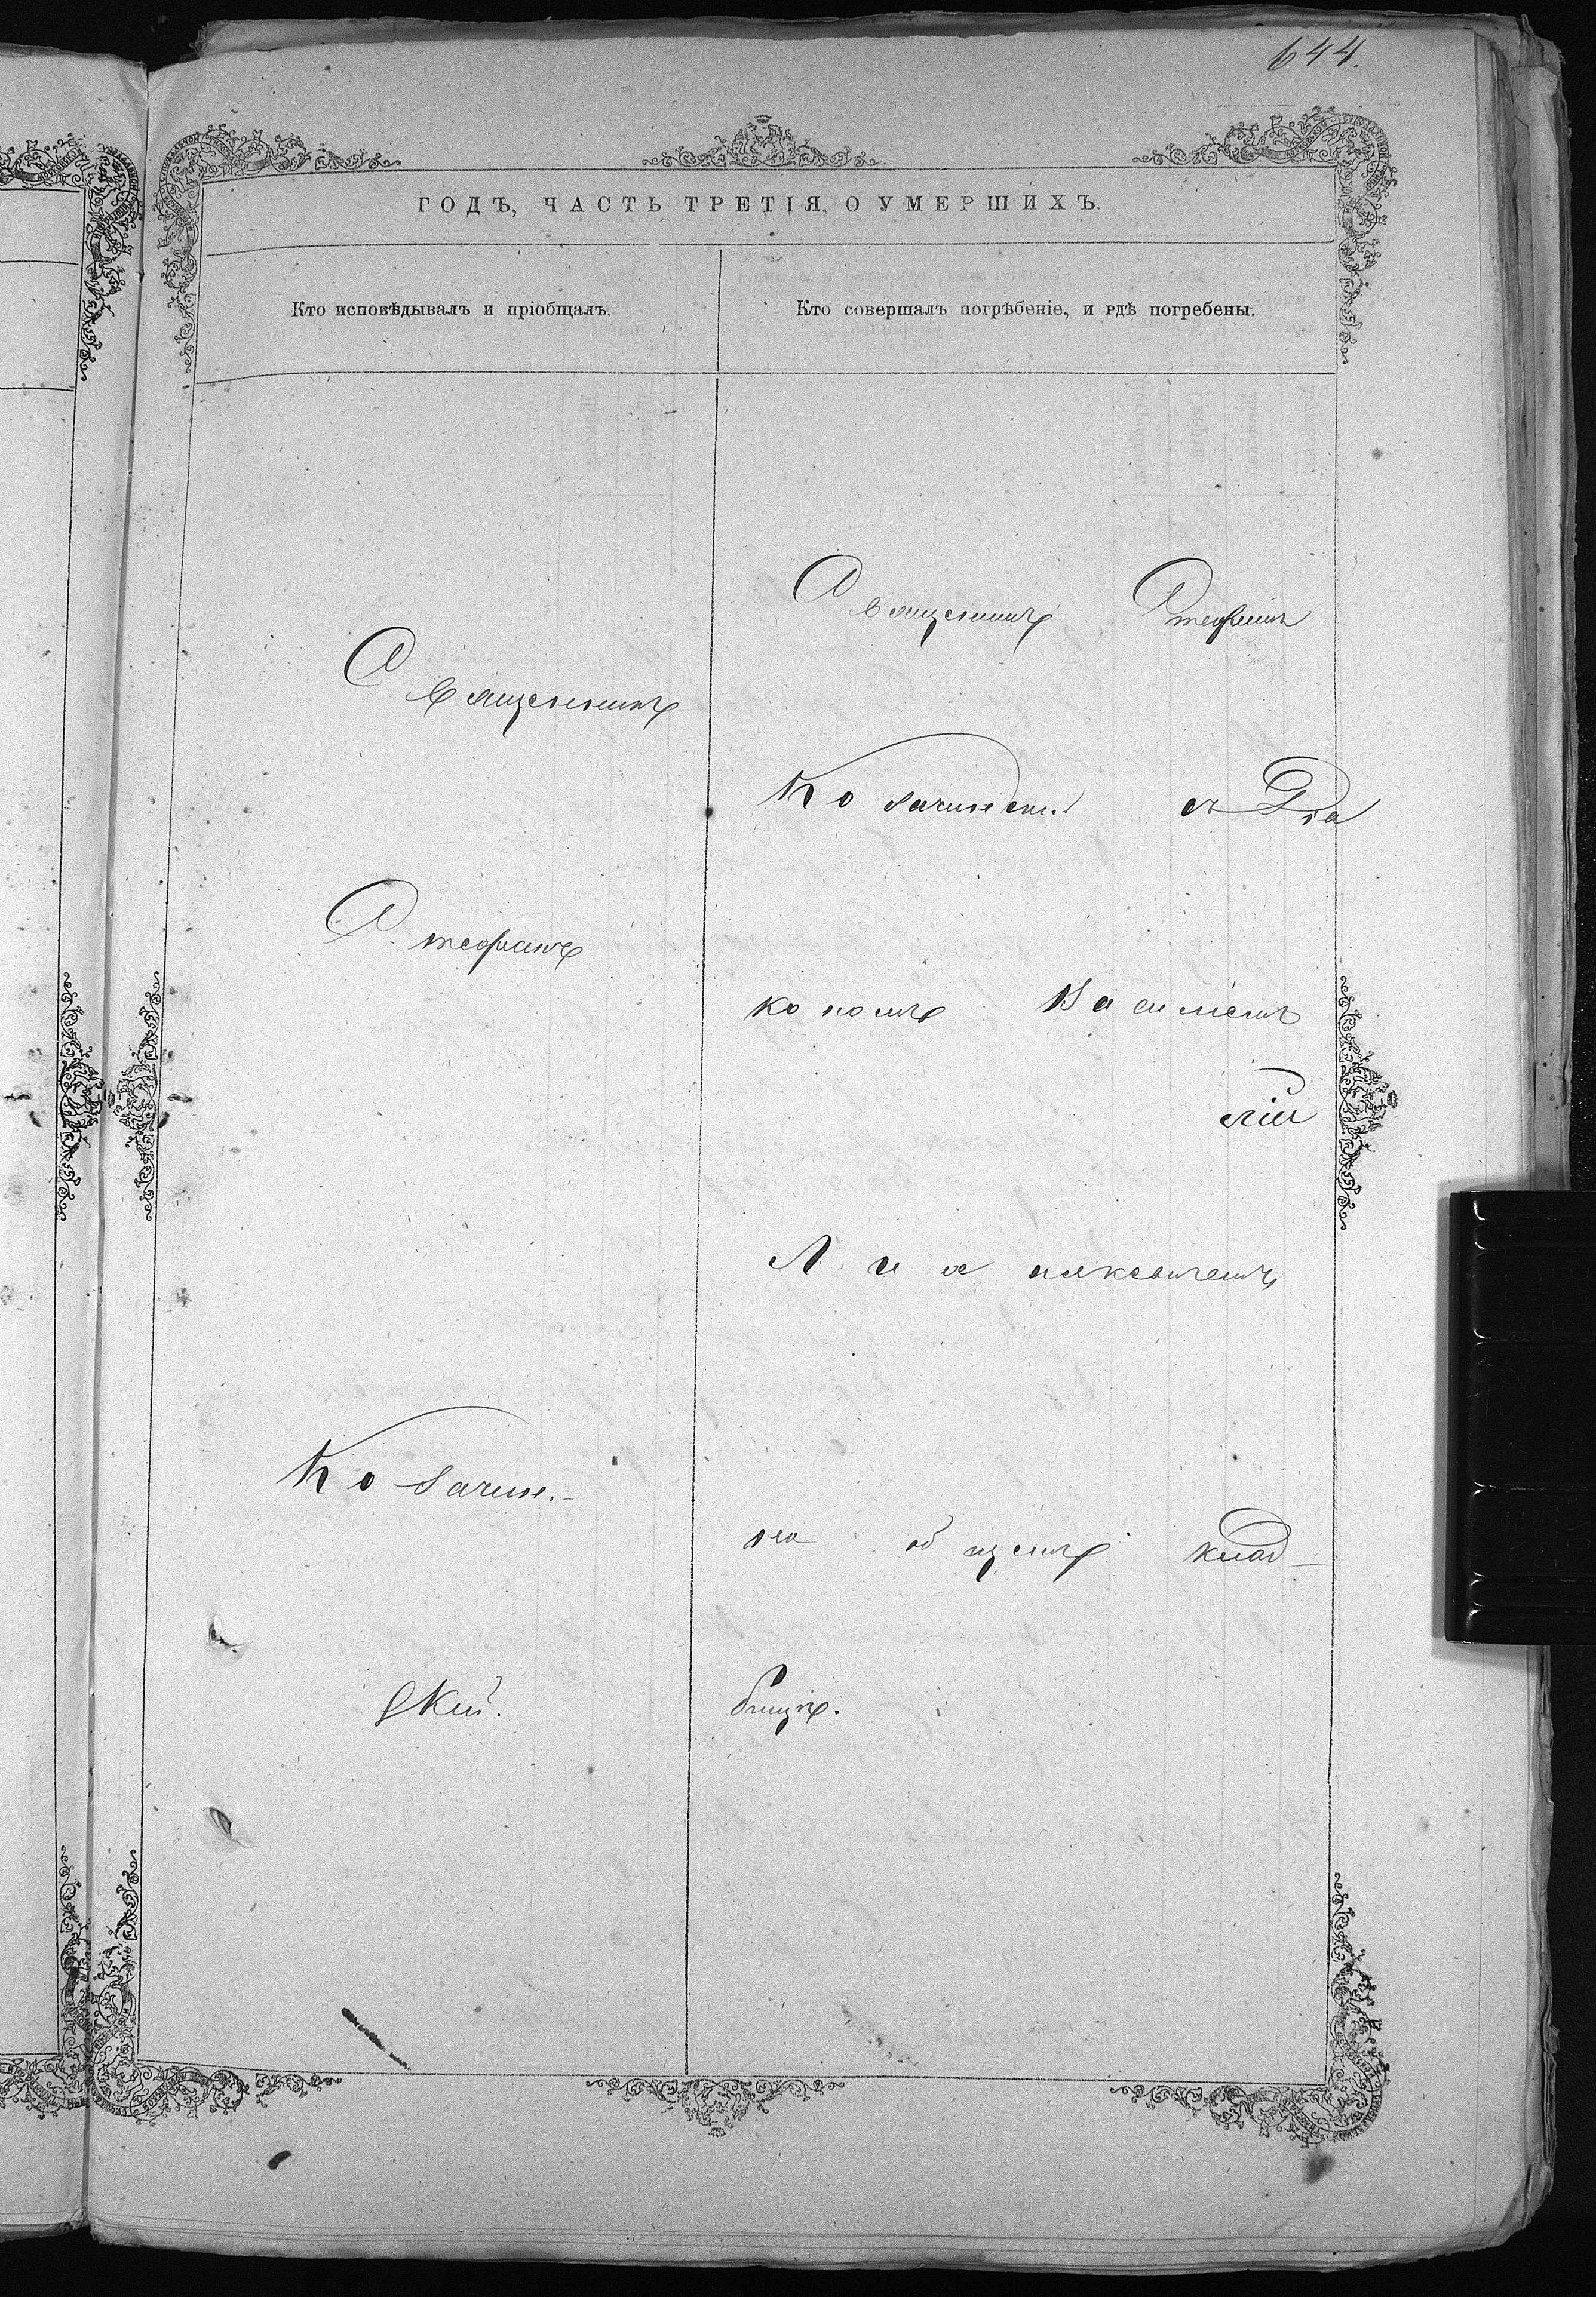 644.
ГОДЪ, ЧАСТЬ ТРЕТІЯ, О УМЕРШИХЪ.
Кто исповѣдывалъ и пріобщалъ.
Кто совершалъ погрѣбеніе, и гдѣ погребены.
Священникъ
Стефанъ
Козачин-
скій.
Священникъ Стефанъ
Козачинскій съ Діа
кономъ Василіемъ
на общемъ клад-
бищѣ.